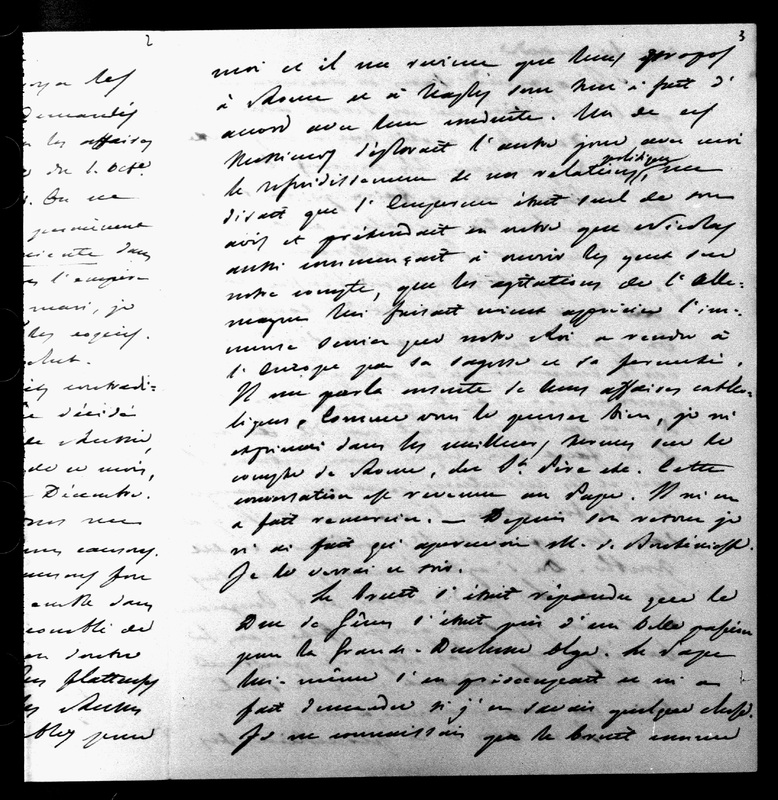 2
oya les
Demandés
les affaires
de l.
On ne
permanent
dans
l'empire
mari, je
les exigées.
contradi=
décidé
de Russie,
de ce mois,
Décembre.
nous ne
causons.
dans
de
flatteurs
les Russes
pour
3
moi et il me revient que leurs propos
à Rome et à Naples sont tout à fait d'
accord avec leur conduite. Un de ces
Messieurs déplorait l'autre jour avec moi
le refroidissement de nos relations politiques, me
disant que l'Empereur était seul de son
avis et prétendait en outre que Nicolas
aussi commençait à ouvrir les yeux sur
notre compte, que les agitations de l'Alle=
magne lui faisait mieux apprécier l'im=
mense service que notre Roi a rendu à
l'Europe par sa sagesse et sa fermeté.
Il me parla ensuite de leurs affaires catho=
liques. Comme vous le pensez bien, je m'
exprimai dans les meilleurs termes sur le
compte de Rome, du St. Père etc. Cette
conversation est revenue au Pape. Il m'en
a fait remercier. — Depuis son retour je
n'ai fait qu'apercevoir M. de
Je le verrai ce soir.
Le bruit s'était répandu que le
Duc de Gênes s'était pris d'une belle passion
pour la Grande-Duchesse Olga. Le Pape
lui-même s'en préoccupait et m'a
fait demander si j'en savais quelque chose.
Je ne connaissais que le bruit comme